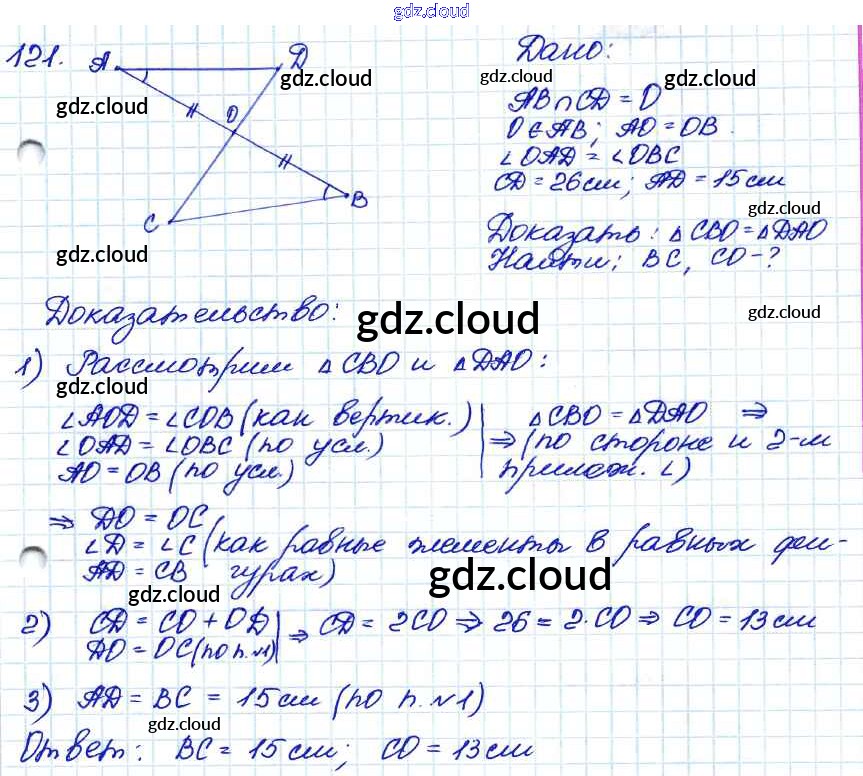 gdz.cloud
121.
A D
O
C B
gdz.cloud gdz.cloud
gdz.cloud
Дано:
gdz.cloud
AB∩CD = O
O∈AB; AO = OB.
∠OAD = ∠OBC
CD = 26см; AD = 15см
gdz.cloud
Доказать: △CBO = △DAO
Найти: BC, CO - ?
Доказательство:
gdz.cloud gdz.cloud
1) Рассмотрим △CBO и △DAO:
gdz.cloud
∠AOD = ∠COB (как вертик.)
∠OAD = ∠OBC (по усл.)
AO = OB (по усл.)
△CBO = △DAO ⇒
⇒ (по стороне и 2-м
прилеж. ∠)
gdz.cloud
⇒ DO = OC
∠D = ∠C (как равные элементы в равных фи-
AD = CB гурах)
gdz.cloud gdz.cloud
2) CD = CO + OD
DO = OC (по п.№1)
⇒ CD = 2CO ⇒ 26 = 2·CO ⇒ CO = 13см
3) AD = BC = 15см (по п.№1)
gdz.cloud gdz.cloud
Ответ: BC = 15см; CO = 13см